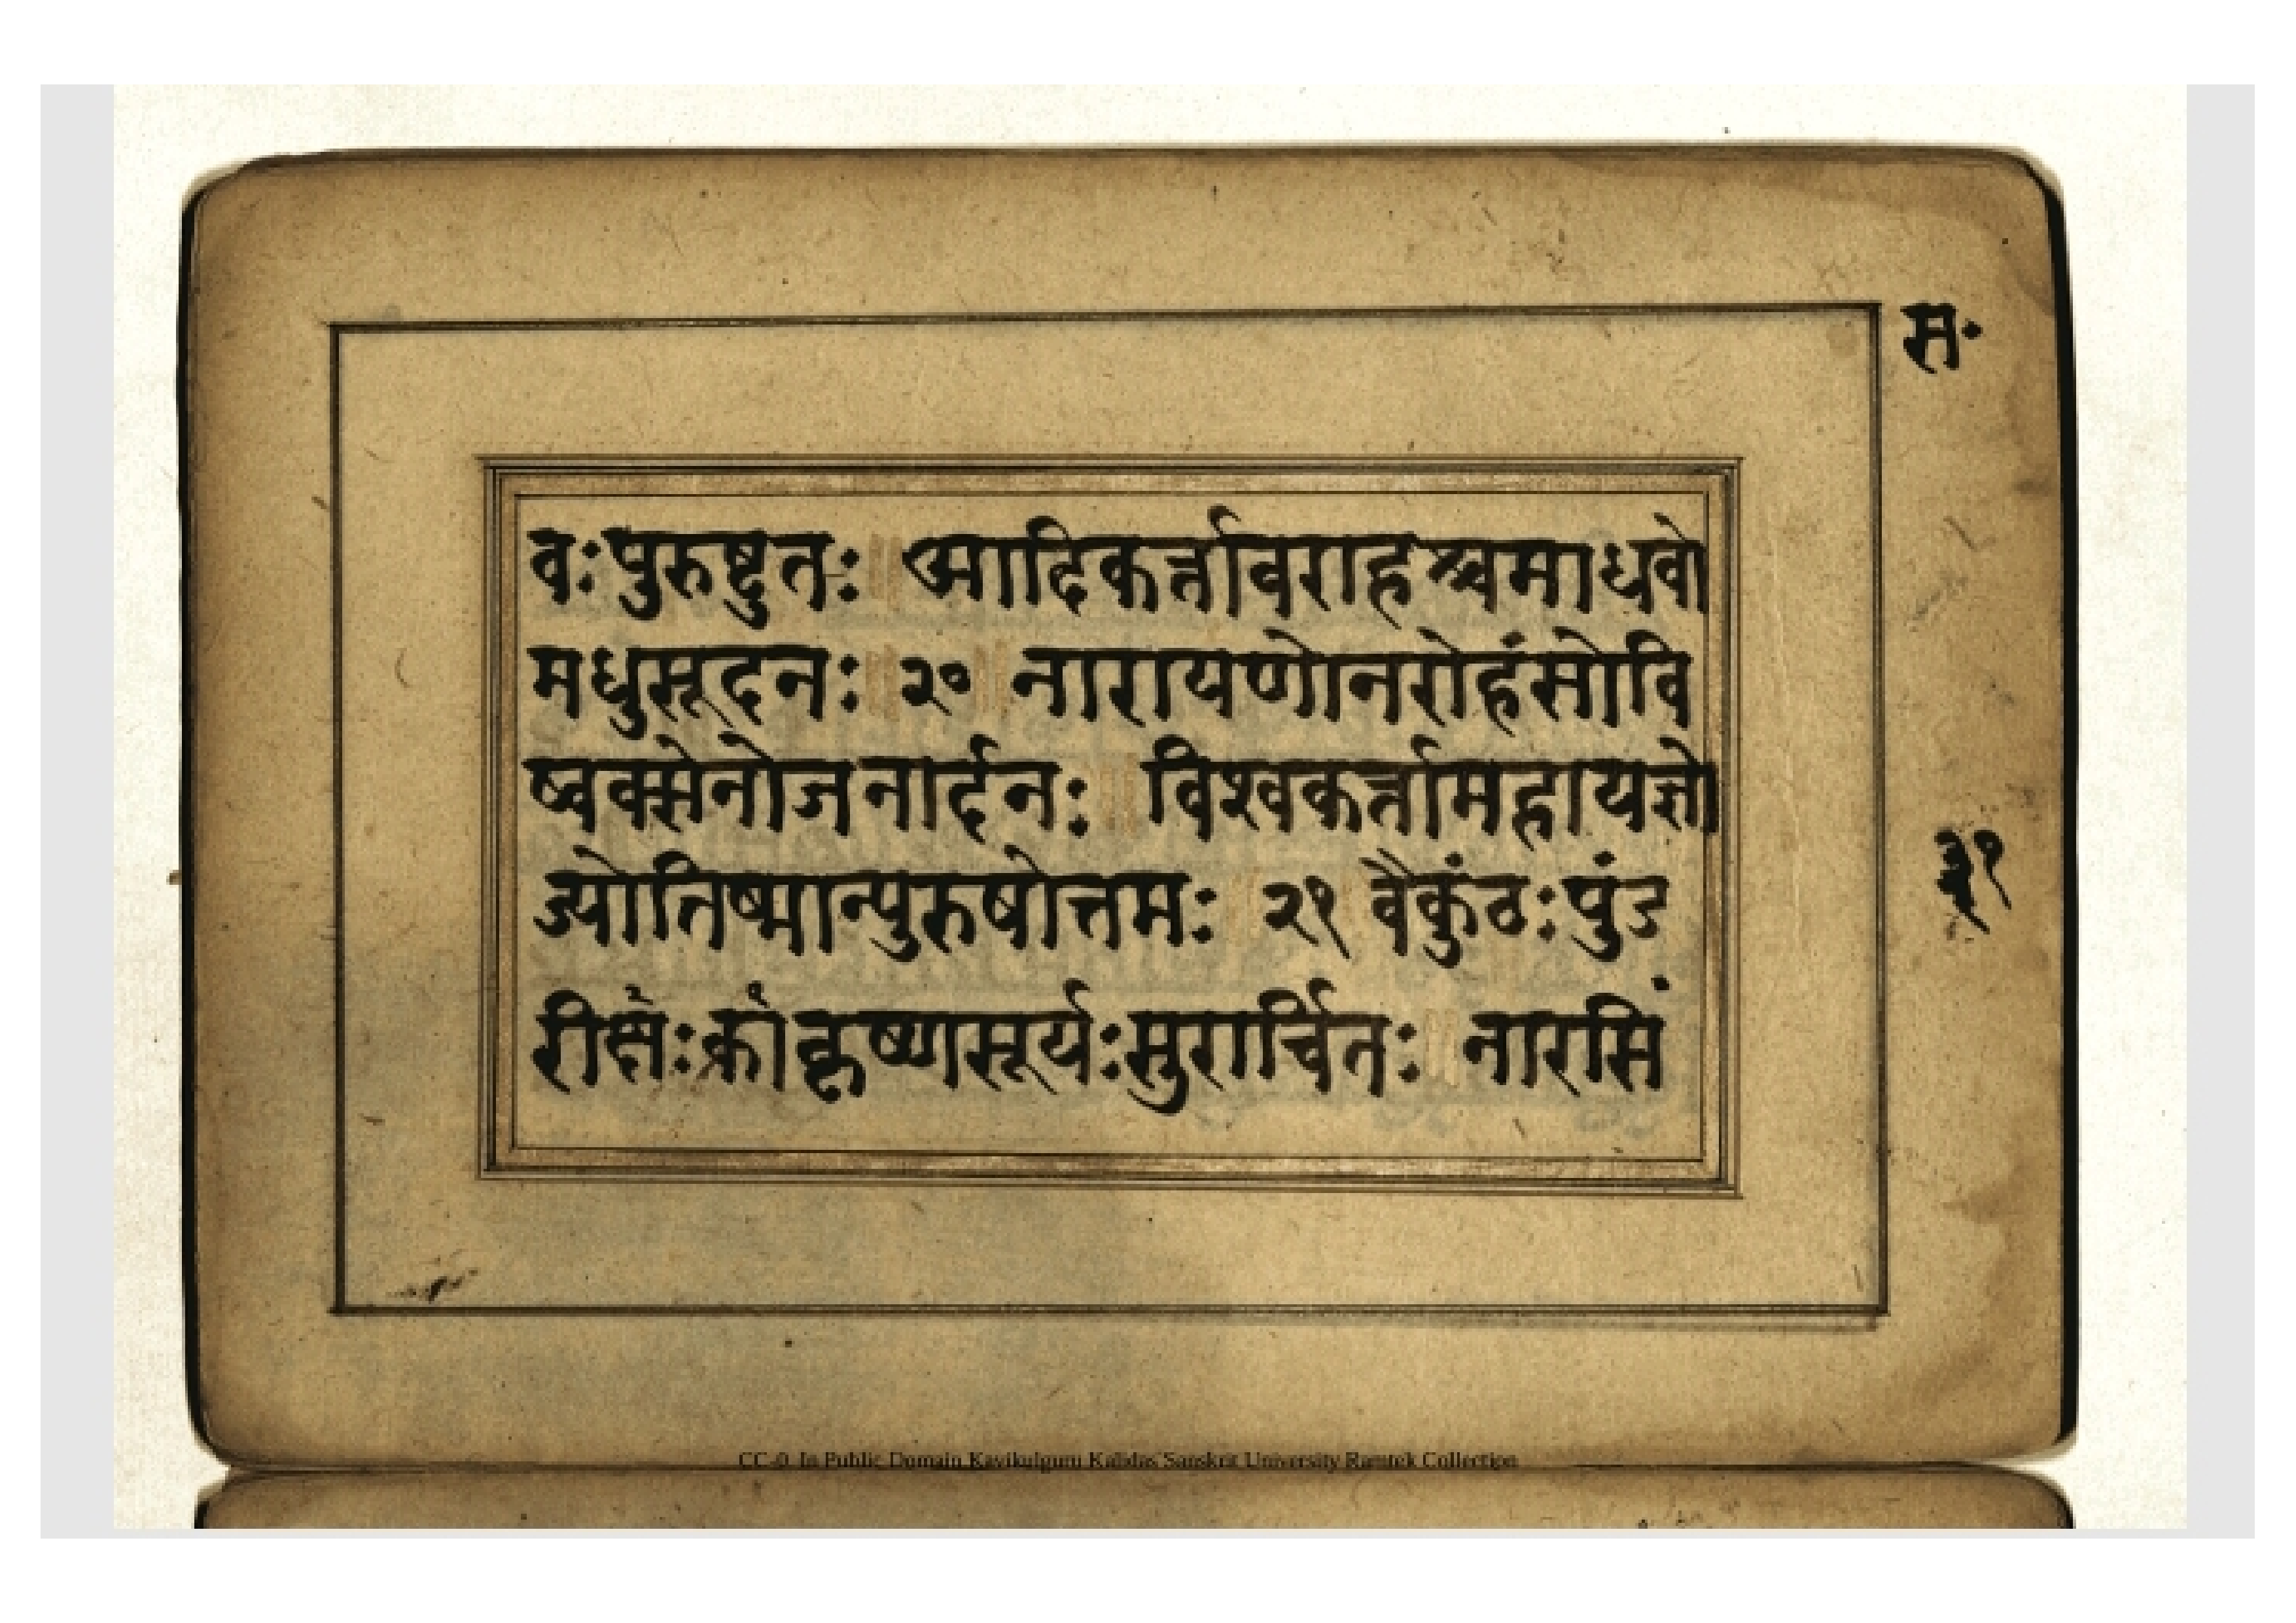 स॰
वः पुरुष्टुतः ॥ आदिकर्त्तावराहश्चमाधवो
मधुसूदनः ॥ २० ॥ नारायणोनरोहंसोवि
ष्वक्सेनोजनार्दनः ॥ विश्वकर्त्तामहायज्ञो
ज्योतिष्मान्पुरुषोत्तमः ॥ २१ ॥ वैकुंठःपुंड
रीक्षःकृष्णसूर्यःसुरार्चितः ॥ नारसिं
CC-0. In Public Domain Kavikulguru Kalidas Sanskrit University Ramtek Collection